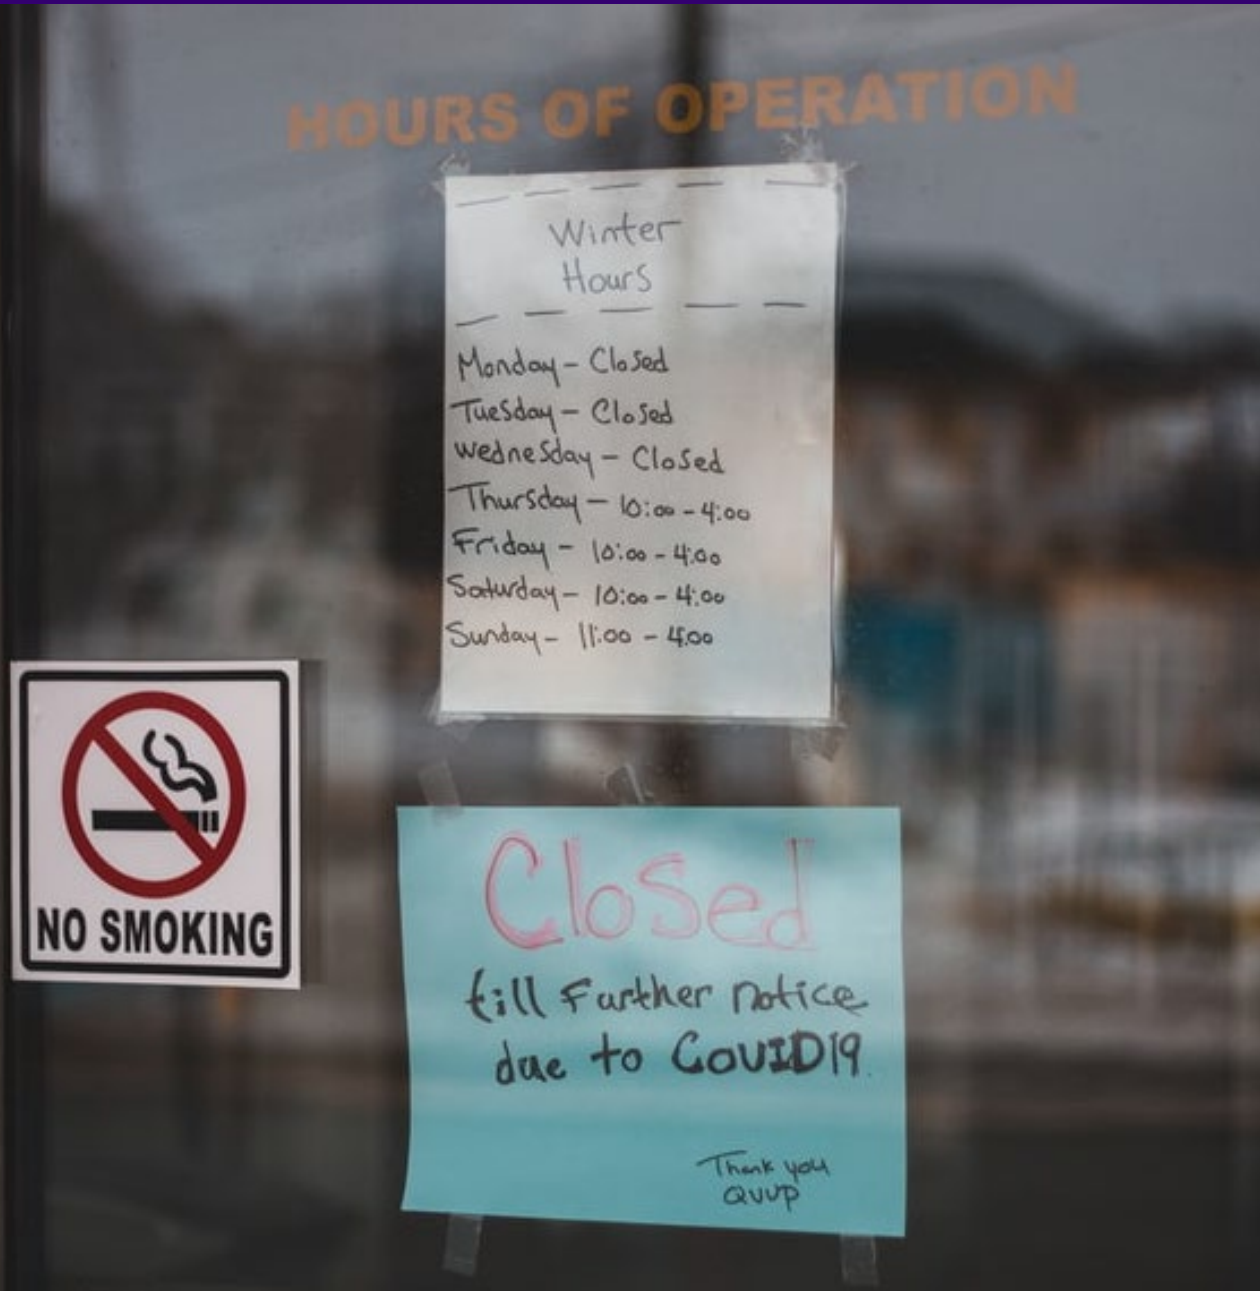 HOURS OF OPERATION
Winter
Hours
Monday - Closed
Tuesday - Closed
Wednesday - Closed
Thursday - 10:00 - 4:00
Friday - 10:00 - 4:00
Saturday - 10:00 - 4:00
Sunday - 11:00 - 4:00
NO SMOKING
Closed
till Further notice
due to COVID19.
Thank you
QVVP